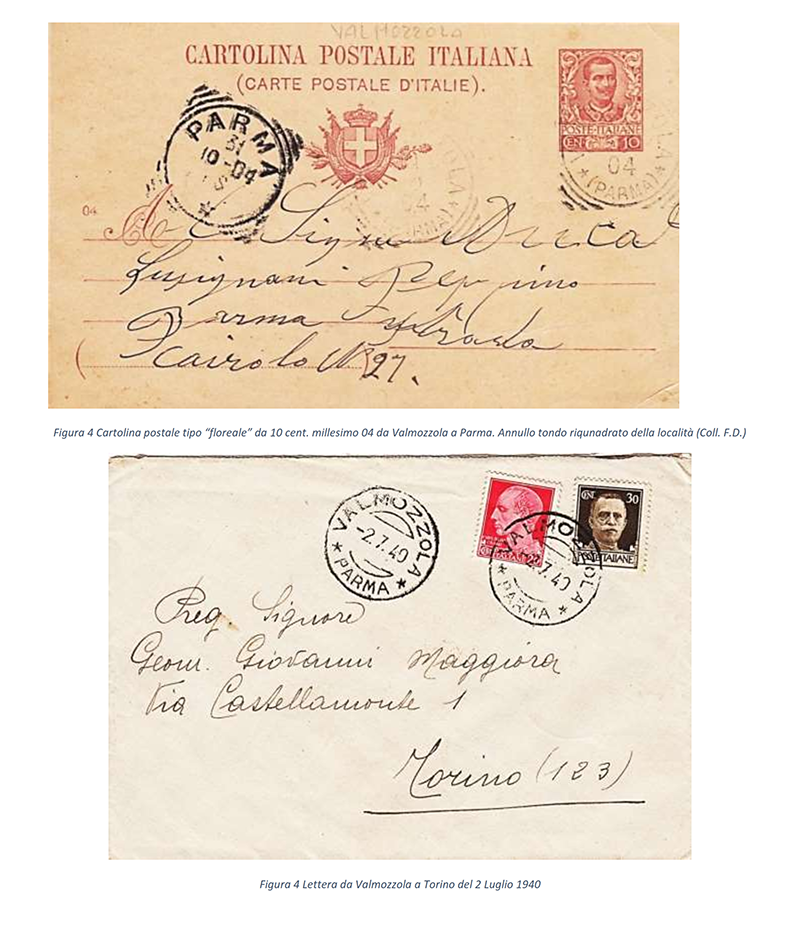 VALMOZZOLA
CARTOLINA POSTALE ITALIANA
(CARTE POSTALE D'ITALIE).
POSTE·ITALIANE
CEN 10
PARMA
31
10-04
04
(PARMA)
04
(PARMA)
04
Al Sign Duca
Lusignani Peppino
Parma Strada
Cairolo N 27.
Figura 4 Cartolina postale tipo “floreale” da 10 cent. millesimo 04 da Valmozzola a Parma. Annullo tondo riqunadrato della località (Coll. F.D.)
VALMOZZOLA
-2.7.40
* PARMA *
CENT 30
POSTE ITALIANE
VALMOZZOLA
-2.7.40
* PARMA *
Preg. Signore
Geom. Giovanni Maggiora
Via Castellamonte 1
Torino (123)
Figura 4 Lettera da Valmozzola a Torino del 2 Luglio 1940